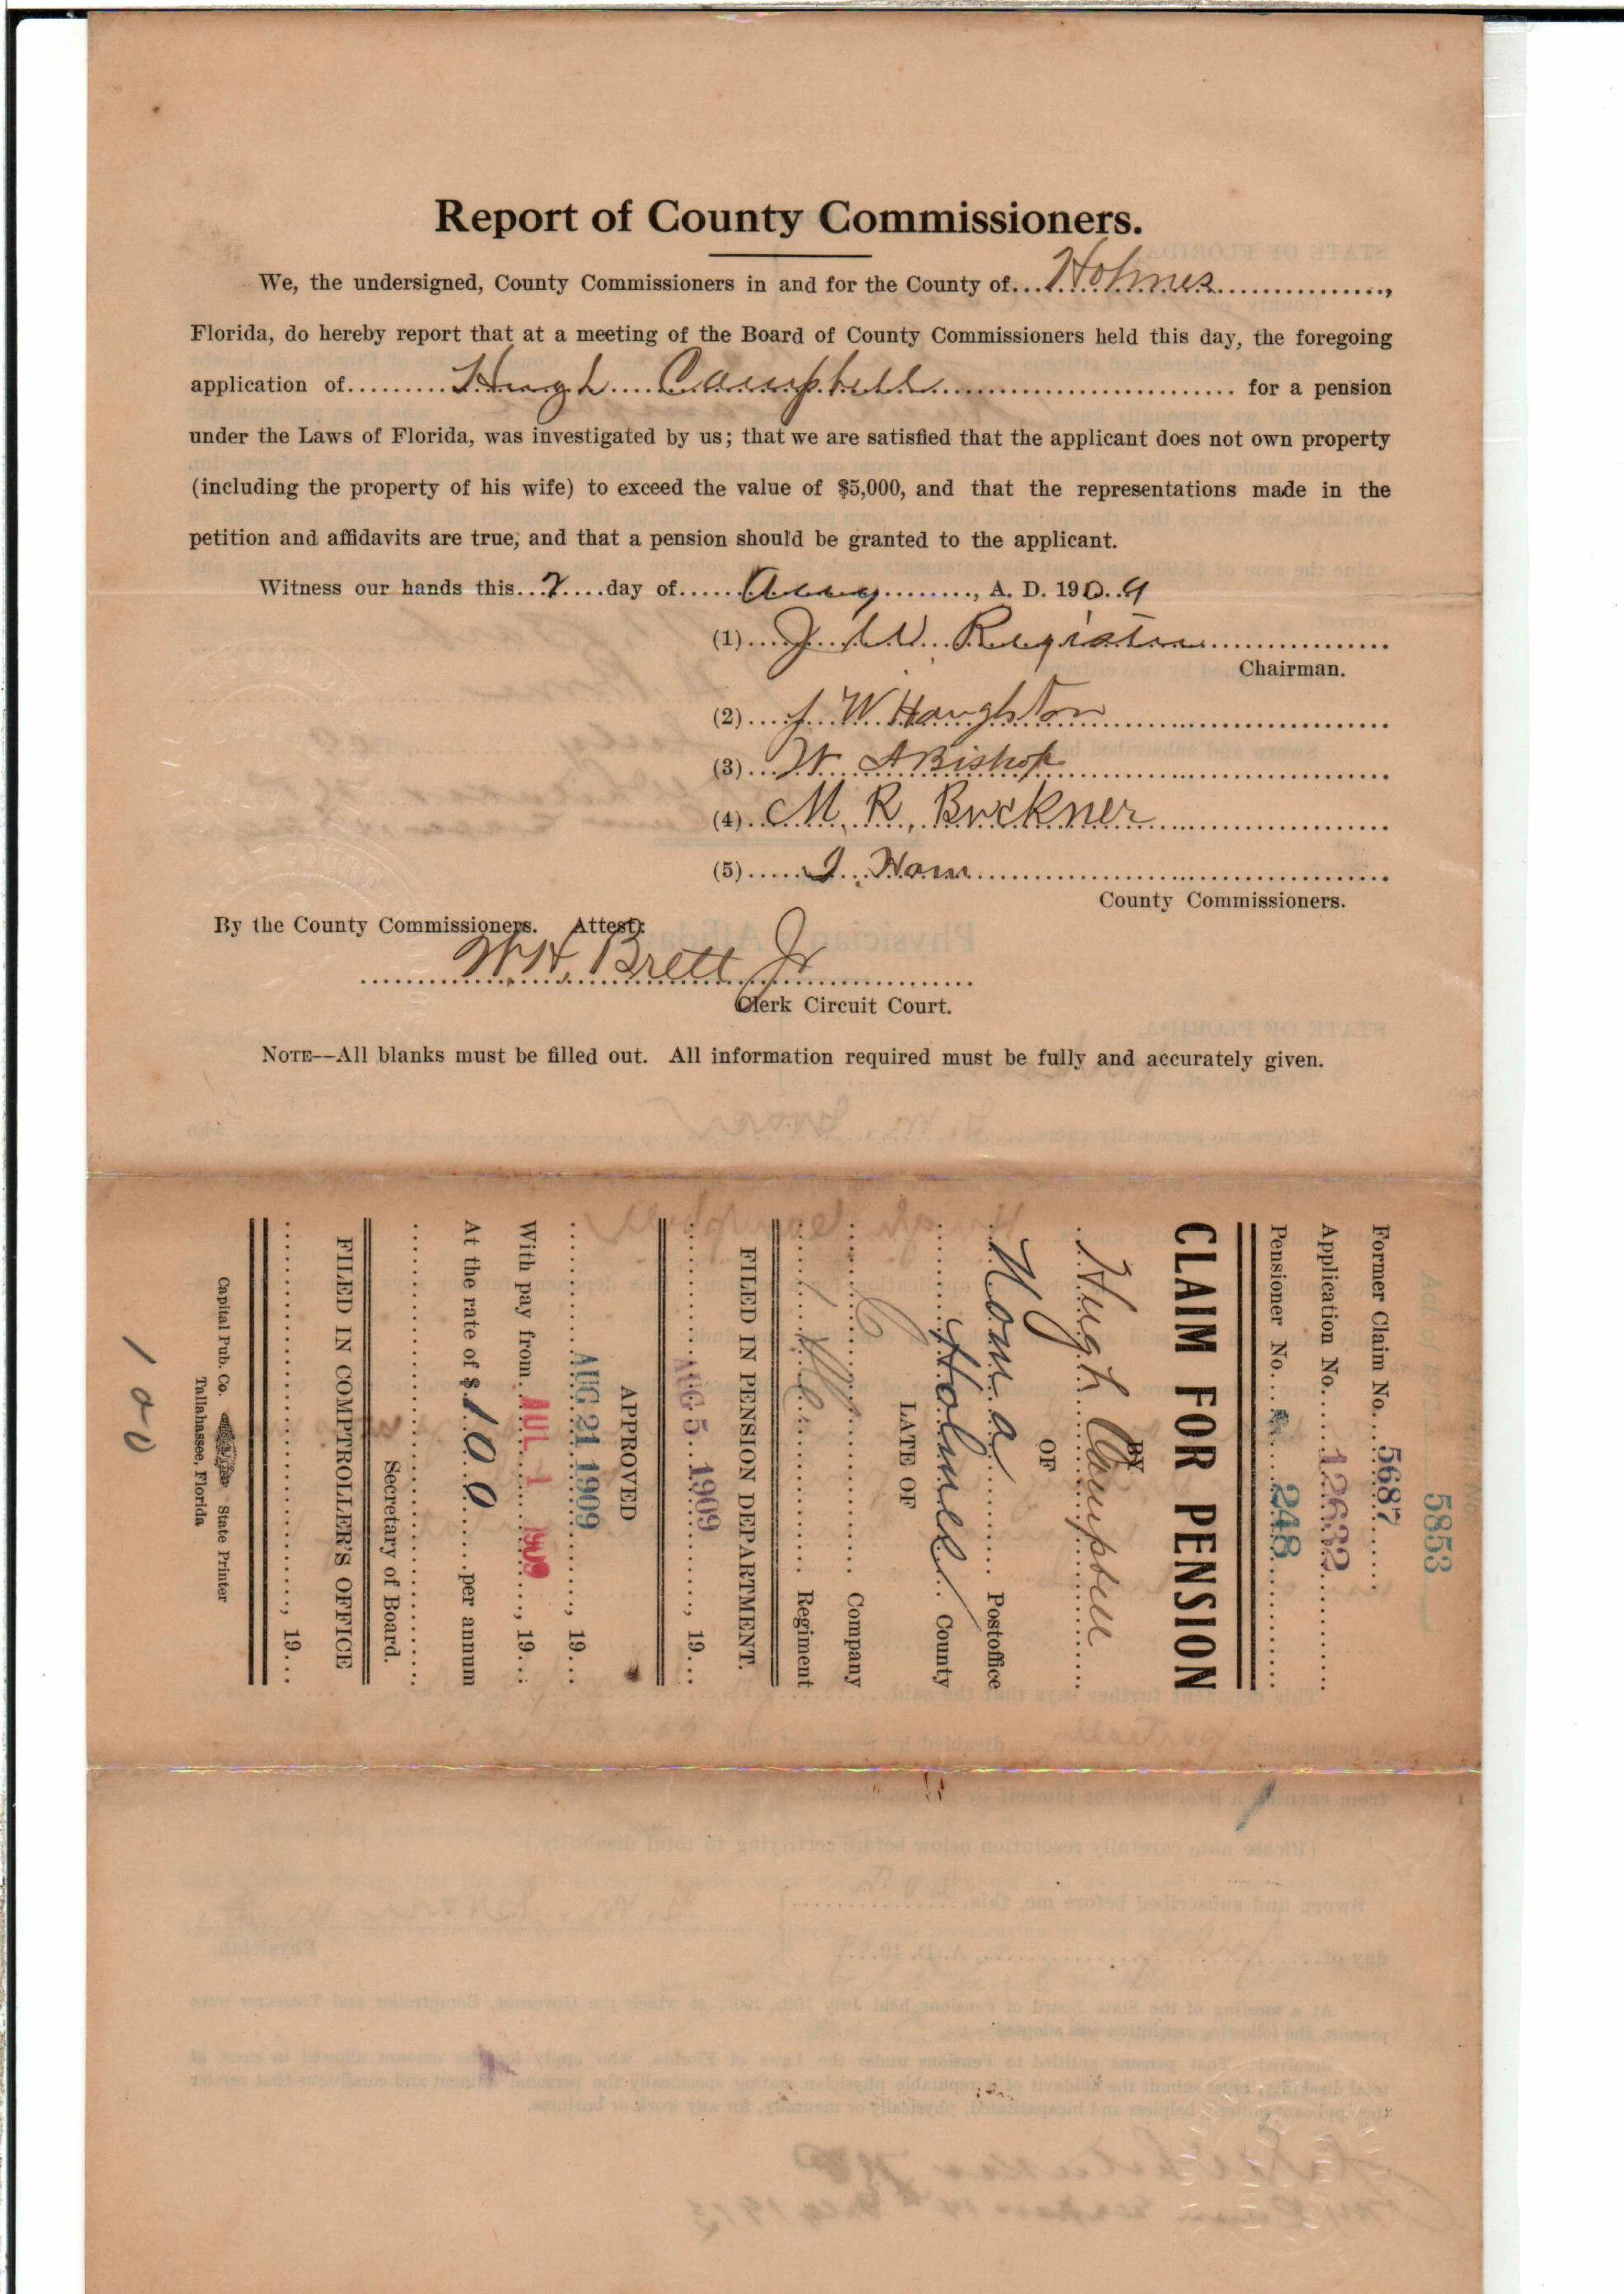 Report of County Commissioners.
We, the undersigned, County Commissioners in and for the County of...Holmes...............,
Florida, do hereby report that at a meeting of the Board of County Commissioners held this day, the foregoing
application of.........Hugh....Campbell.............................. for a pension
under the Laws of Florida, was investigated by us; that we are satisfied that the applicant does not own property
(including the property of his wife) to exceed the value of $5,000, and that the representations made in the
petition and affidavits are true, and that a pension should be granted to the applicant.
Witness our hands this...2....day of......Aug.........., A. D. 190..9
(1)....J. W. Register..................
Chairman.
(2)....J. W Haughton..................
(3)...W. A Bishop..................
(4)..M. R. Buckner..................
(5).....J. Ham..................
County Commissioners.
By the County Commissioners. Attest:
W. H. Brett Jr
Clerk Circuit Court.
NOTE—All blanks must be filled out. All information required must be fully and accurately given.
5853
Former Claim No....5687......
Application No.....12632..........
Pensioner No.......248..........
CLAIM FOR PENSION
BY
Hugh Campbell
OF
Noma........ Postoffice
Holmes... County
LATE OF
C............ Company
1............ Regiment
FILED IN PENSION DEPARTMENT.
AUG 5 1909........, 19...
APPROVED
AUG 21 1909........, 19...
With pay from...JUL 1 1909...., 19...
At the rate of $100......per annum
Secretary of Board.
FILED IN COMPTROLLER'S OFFICE
............................, 19...
Capital Pub. Co. State Printer
Tallahassee, Florida
100